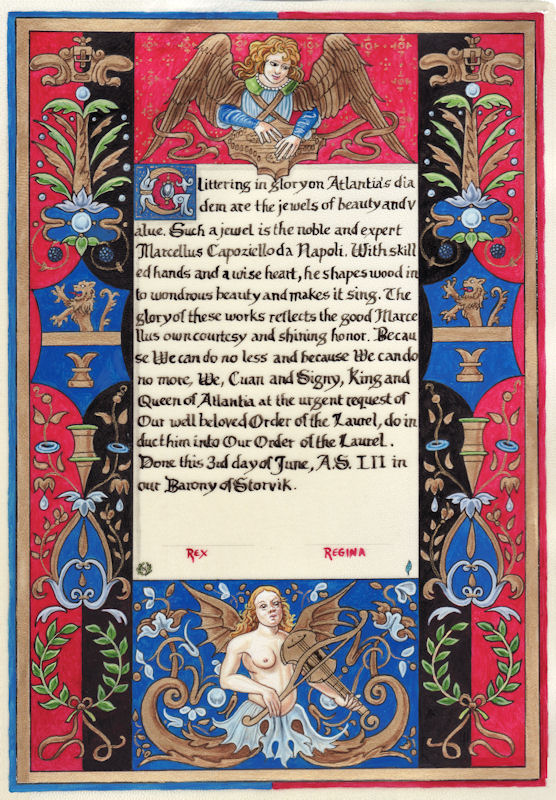 Glittering in glory on Atlantia's dia
dem are the jewels of beauty and v
alue. Such a jewel is the noble and expert
Marcellus Capoziello da Napoli. With skill
ed hands and a wise heart, he shapes wood in
to wondrous beauty and makes it sing. The
glory of these works reflects the good Marce
llus own courtesy and shining honor. Becau
se We can do no less and because We can do
no more, We, Cuan and Signy, King and
Queen of Atlantia at the urgent request of
Our well beloved Order of the Laurel, do in
duct him into Our Order of the Laurel.
Done this 3rd day of June, A.S. LII in
our Barony of Storvik.
Rex Regina